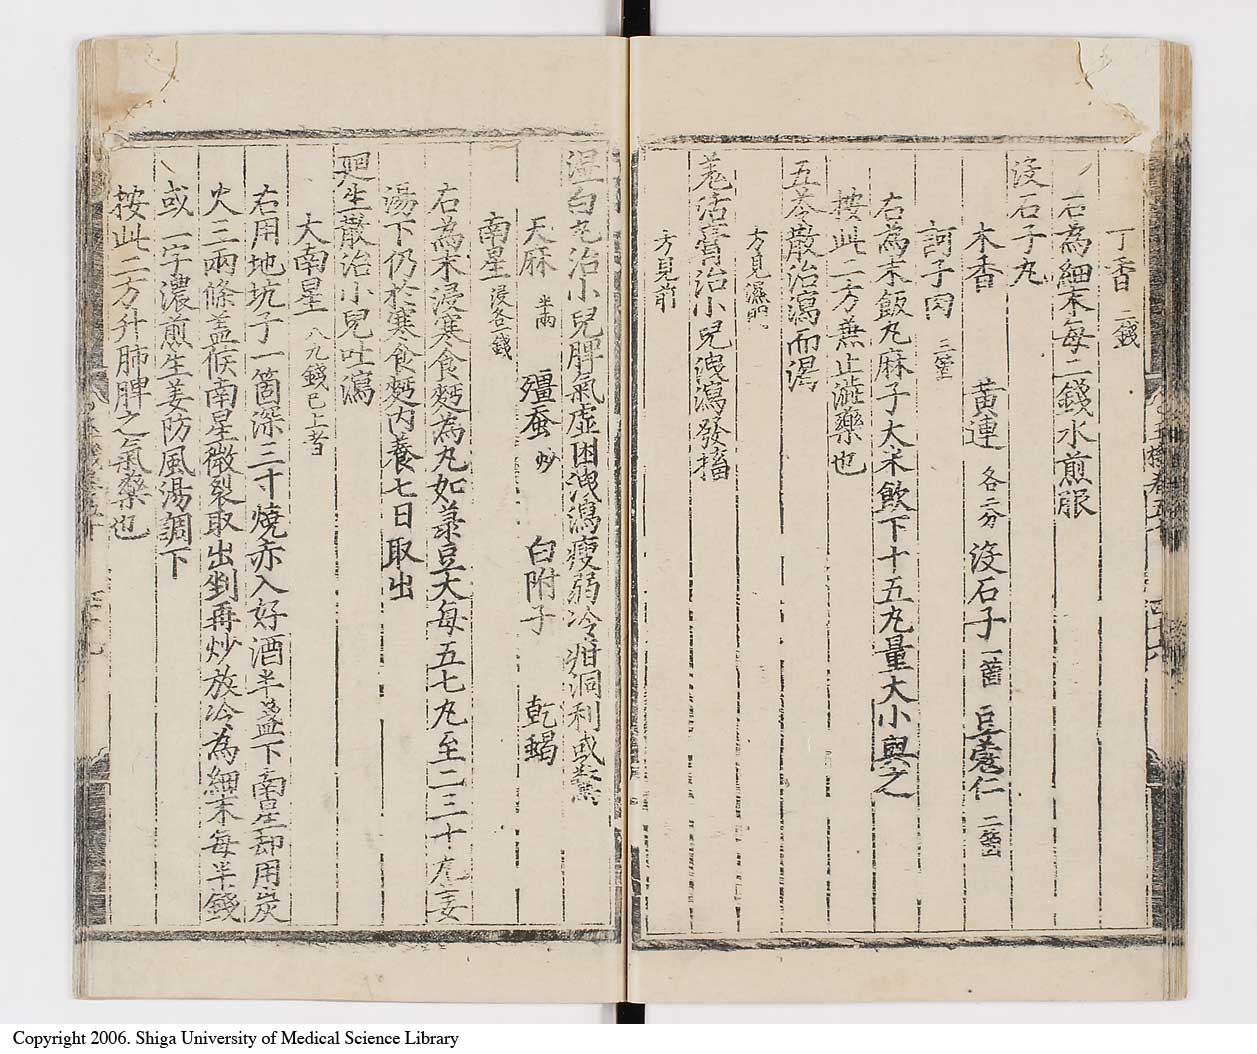 丁香二錢
右為細末每二錢水煎服
沒石子丸
木香　黃連各二分　沒石子一箇　豆蔻仁二箇
訶子肉三箇
右為末飯丸麻子大米飲下十五丸量大小與之
按此二方兼止澁藥也
五苓散治瀉而渴
方見濕門
羗活膏治小兒洩瀉發搐
方見前
溫白丸治小兒脾氣虛困洩瀉瘦弱冷疳洞利或
天麻半兩　殭蚕炒　白附子　乾蝎
南星浸各一錢
右為末浸寒食麪為丸如菉豆大每五七丸至二三十丸姜
湯下仍於寒食麪內養七日取出
廻生散治小兒吐瀉
大南星八九錢已上者
右用地坑子一箇深三寸燒赤入好酒半盞下南星却用炭
火三兩條盖候南星微裂取出剉再炒放冷為細末每半錢
或一字濃煎生姜防風湯調下
按此二方升肺脾之氣藥也
Copyright 2006. Shiga University of Medical Science Library